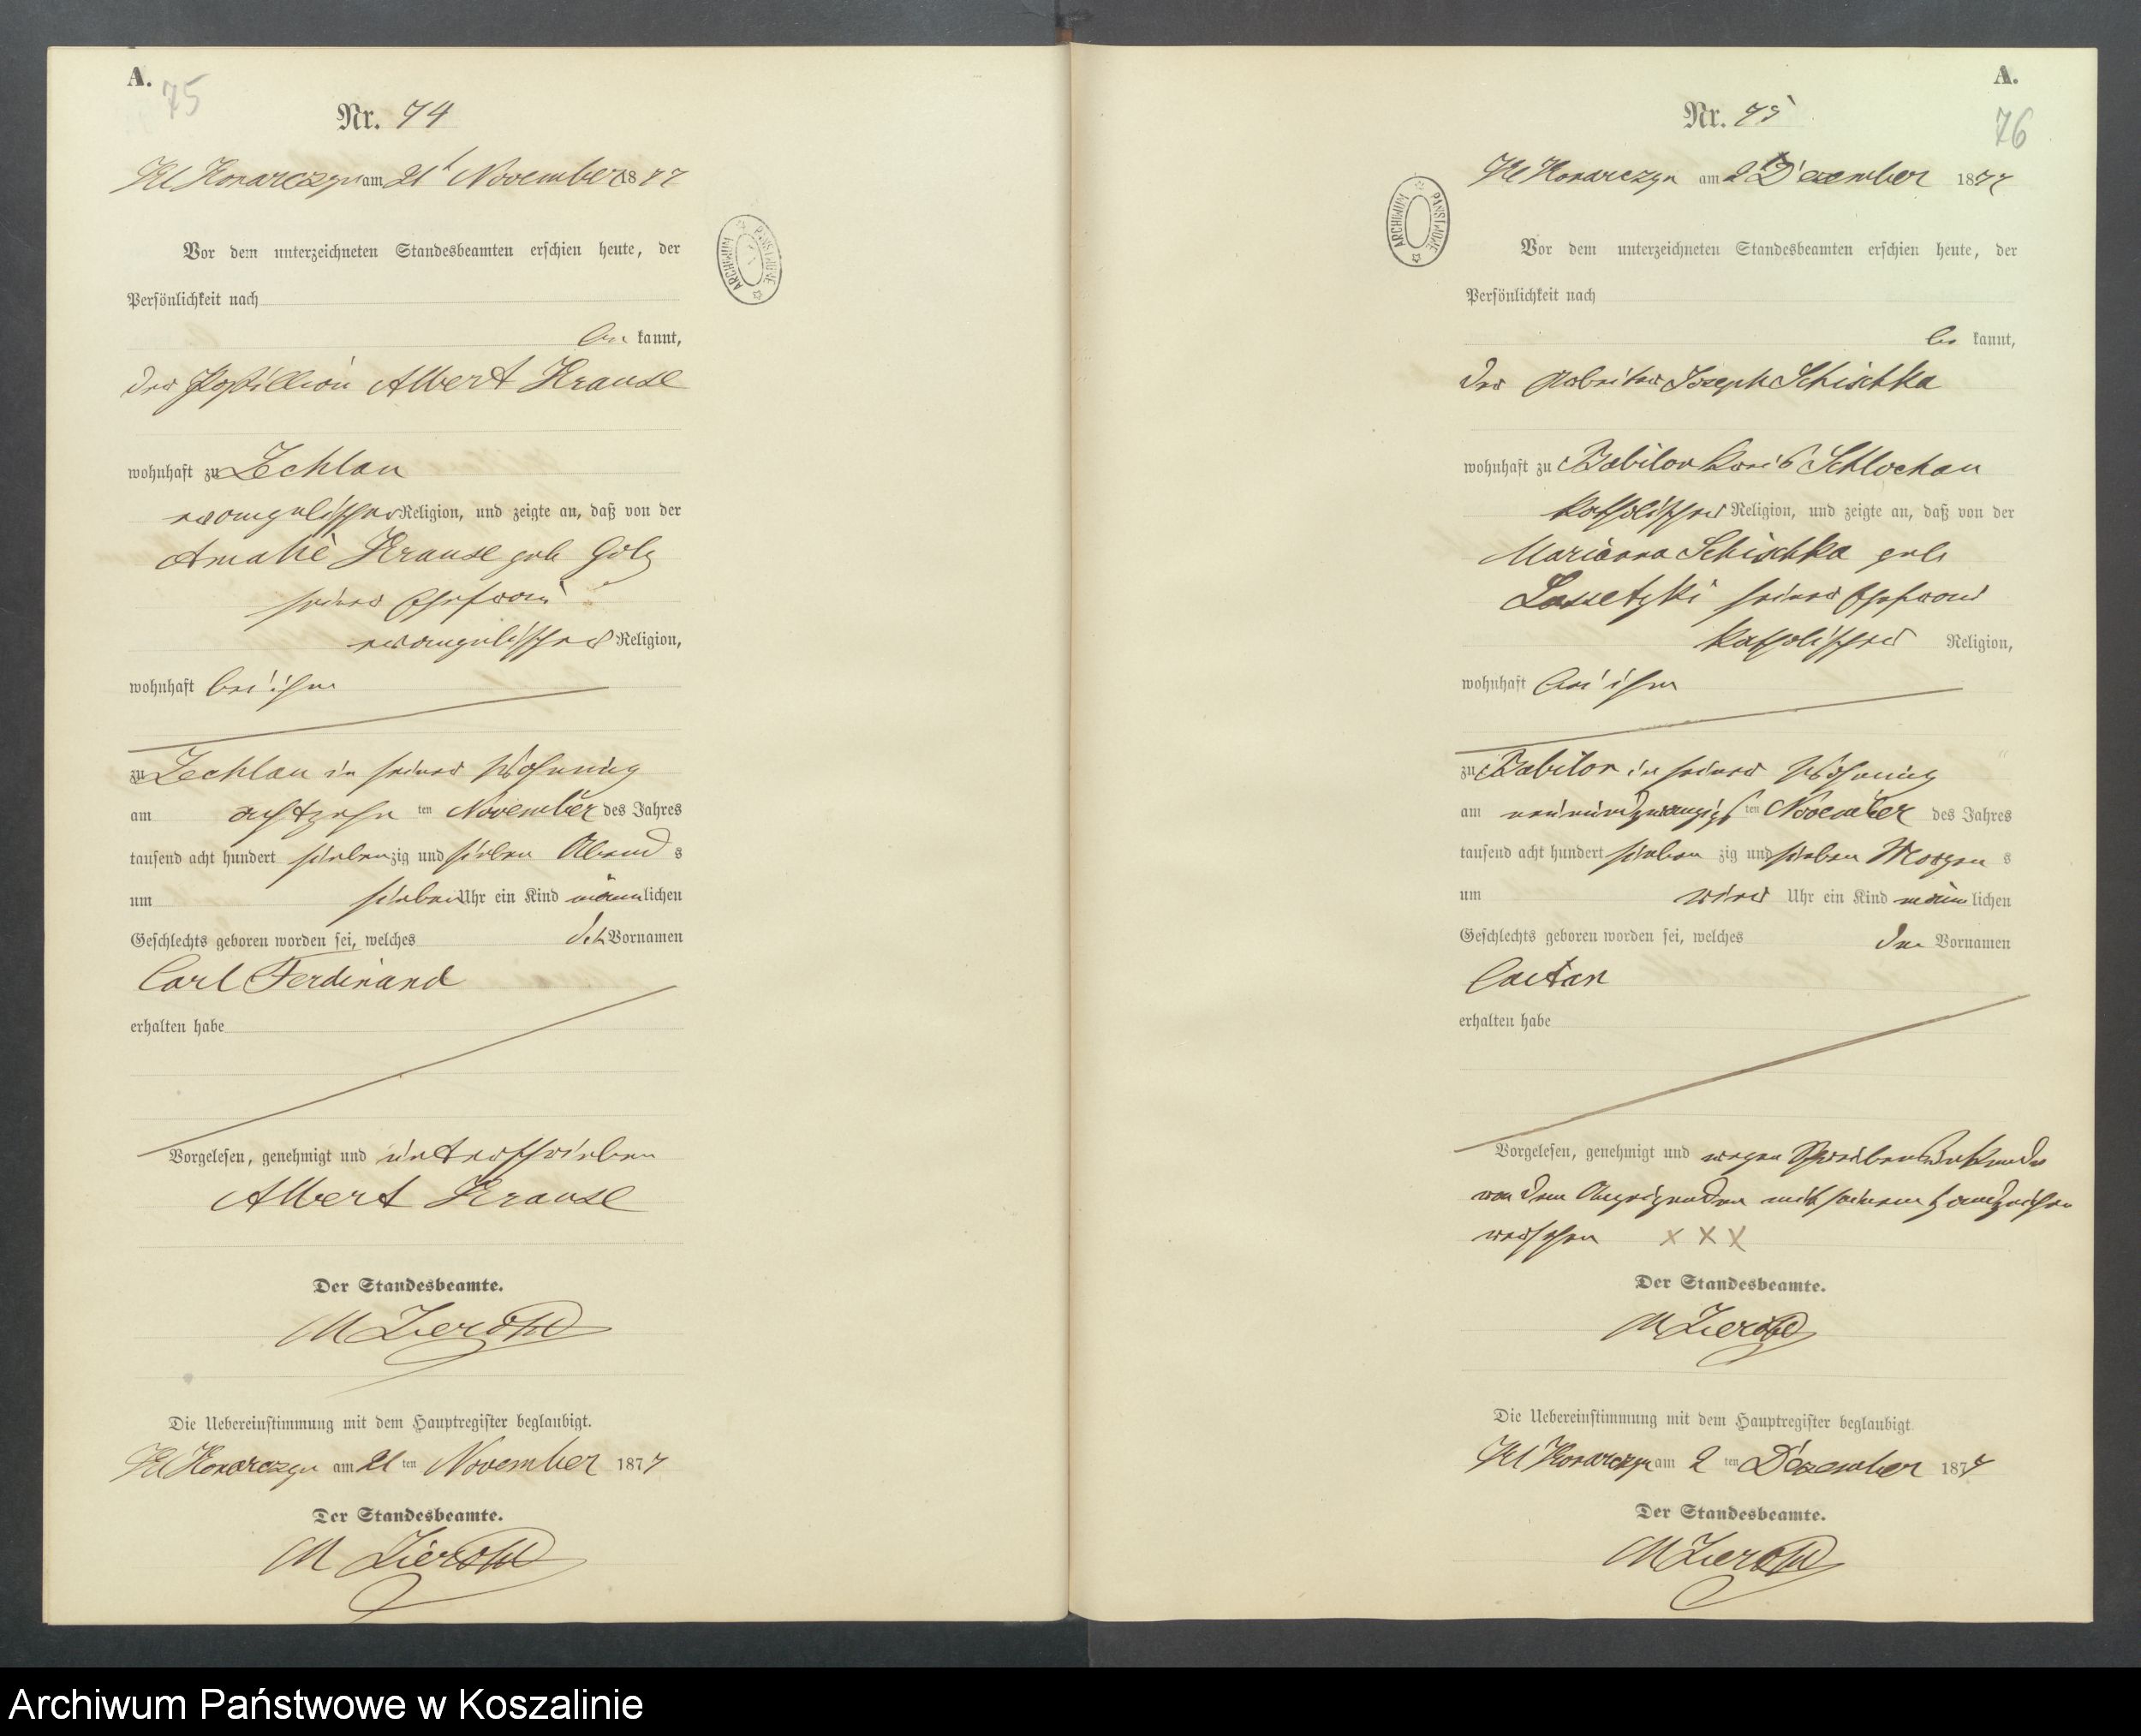 A.
75
Nr. 74
Kl Konarczyn am 21t November 1877
ARCHIWUM PAŃSTWOWE
Vor dem unterzeichneten Standesbeamten erschien heute, der
Persönlichkeit nach
be kannt,
der Postillion Albert Krause
wohnhaft zu Zechlau
evangelischer Religion, und zeigte an, daß von der
Amalie Krause geb Golz
seiner Ehefrau
evangelischer Religion,
wohnhaft bei ihm
zu Zechlau in seiner Wohnung
am achtzehn ten November des Jahres
tausend acht hundert siebenzig und sieben Abend s
um sieben Uhr ein Kind männlichen
Geschlechts geboren worden sei, welches die Vornamen
Carl Ferdinand
erhalten habe
Vorgelesen, genehmigt und unterschrieben
Albert Krause
Der Standesbeamte.
Die Uebereinstimmung mit dem Hauptregister beglaubigt.
Kl Konarczyn am 21 ten November 1877
Der Standesbeamte.
A.
76
Nr. 75
Kl Konarczyn am 2t Dezember 1877
ARCHIWUM PAŃSTWOWE
Vor dem unterzeichneten Standesbeamten erschien heute, der
Persönlichkeit nach
be kannt,
der Arbeiter Joseph Schischka
wohnhaft zu Babilon Kreis Schlochau
katholischer Religion, und zeigte an, daß von der
Marianna Schischka geb
Lassetzki seiner Ehefrau
katholischer Religion,
wohnhaft bei ihm
zu Babilon in seiner Wohnung
am neunundzwanzigs ten November des Jahres
tausend acht hundert sieben zig und sieben Morgen s
um vier Uhr ein Kind männ lichen
Geschlechts geboren worden sei, welches den Vornamen
Caetan
erhalten habe
Vorgelesen, genehmigt und wegen Schreibensunkunde
von dem Anzeigenden mit seinem Handzeichen
versehen XXX
Der Standesbeamte.
Die Uebereinstimmung mit dem Hauptregister beglaubigt.
Kl Konarczyn am 2 ten Dezember 1877
Der Standesbeamte.
Archiwum Państwowe w Koszalinie